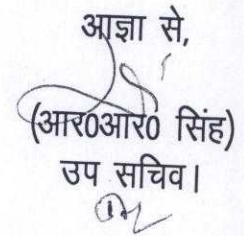 आज्ञा से,
(आर0आर0 सिंह)
उप सचिव।